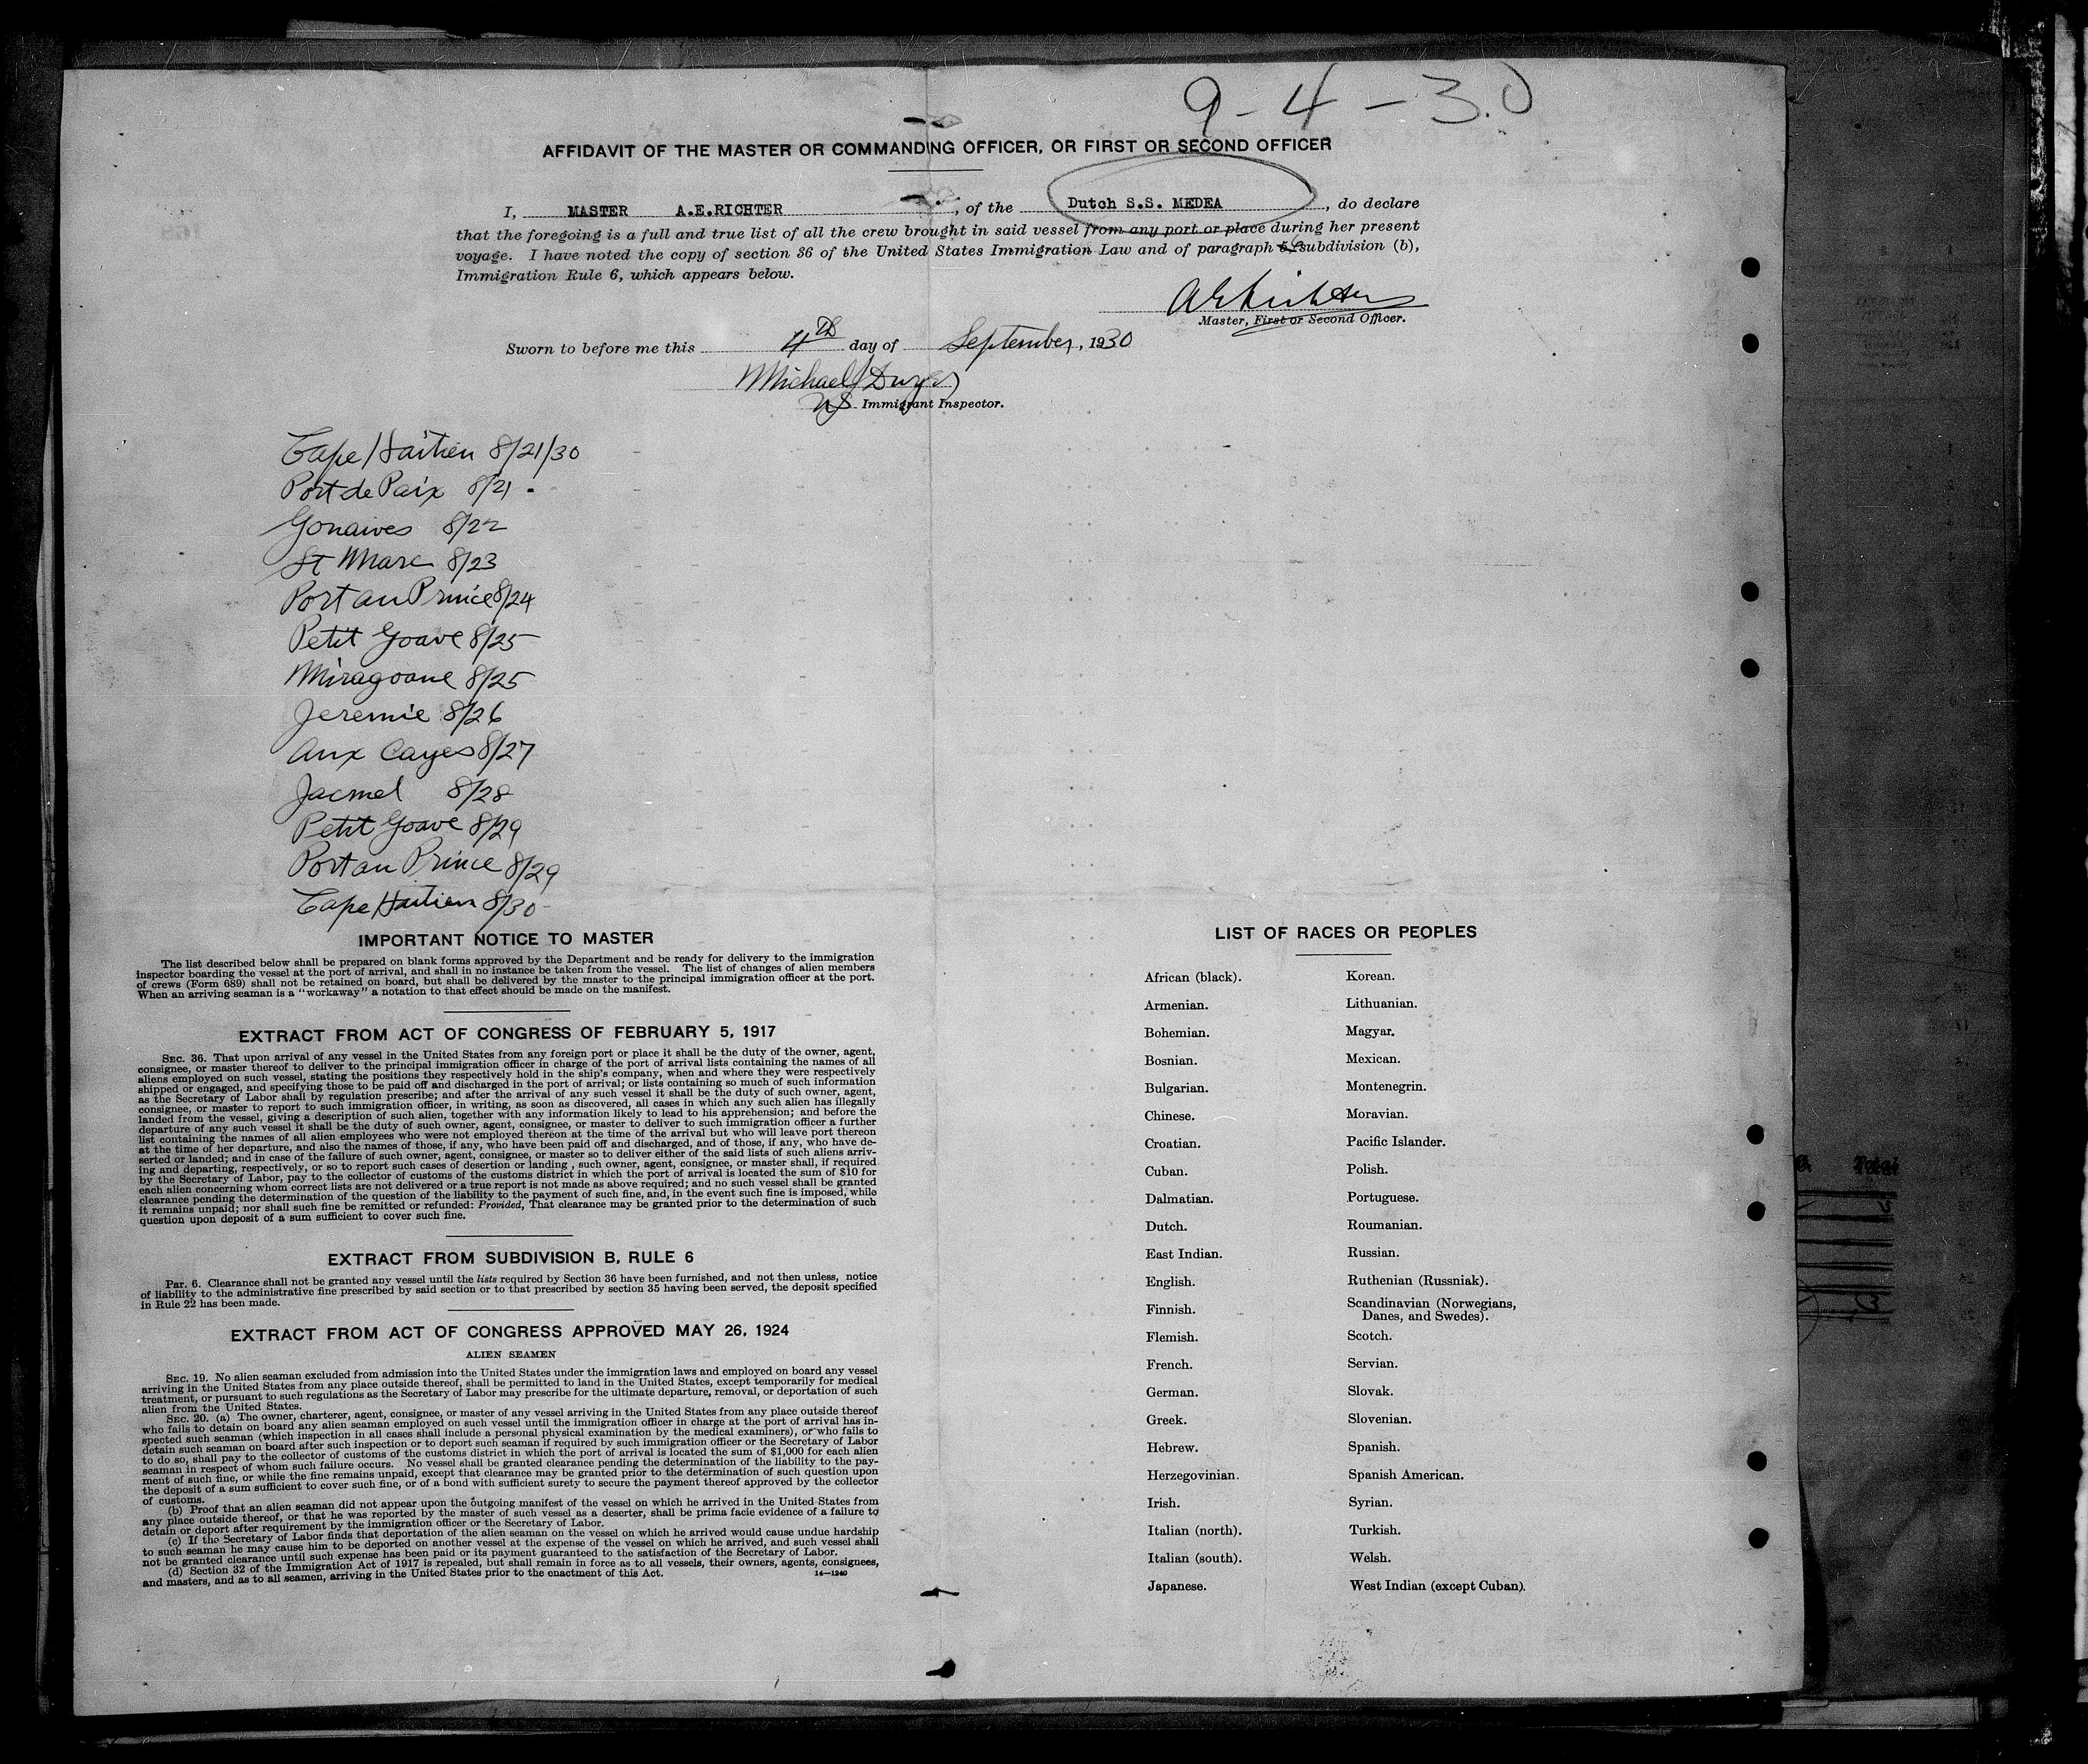 9-4-30
AFFIDAVIT OF THE MASTER OR COMMANDING OFFICER, OR FIRST OR SECOND OFFICER
I, MASTER A.E.RICHTER, of the Dutch S.S. MEDEA, do declare
that the foregoing is a full and true list of all the crew brought in said vessel from any port or place during her present
voyage. I have noted the copy of section 36 of the United States Immigration Law and of paragraph subdivision (b),
Immigration Rule 6, which appears below.
AERichter
Master, First or Second Officer.
Sworn to before me this 4th day of September, 1930
Michael Dwyer
US Immigrant Inspector.
Cape Haitien 8/21/30
Port de Paix 8/21
Gonaives 8/22
St Marc 8/23
Port au Prince 8/24
Petit Goave 8/25
Miragoane 8/25
Jeremie 8/26
Aux Cayes 8/27
Jacmel 8/28
Petit Goave 8/29
Port au Prince 8/29
Cape Haitien 8/30
IMPORTANT NOTICE TO MASTER
The list described below shall be prepared on blank forms approved by the Department and be ready for delivery to the immigration
inspector boarding the vessel at the port of arrival, and shall in no instance be taken from the vessel. The list of changes of alien members
of crews (Form 689) shall not be retained on board, but shall be delivered by the master to the principal immigration officer at the port.
When an arriving seaman is a "workaway" a notation to that effect should be made on the manifest.
EXTRACT FROM ACT OF CONGRESS OF FEBRUARY 5, 1917
SEC. 36. That upon arrival of any vessel in the United States from any foreign port or place it shall be the duty of the owner, agent,
consignee, or master thereof to deliver to the principal immigration officer in charge of the port of arrival lists containing the names of all
aliens employed on such vessel, stating the positions they respectively hold in the ship's company, when and where they were respectively
shipped or engaged, and specifying those to be paid off and discharged in the port of arrival; or lists containing so much of such information
as the Secretary of Labor shall by regulation prescribe; and after the arrival of any such vessel it shall be the duty of such owner, agent,
consignee, or master to report to such immigration officer, in writing, as soon as discovered, all cases in which any such alien has illegally
landed from the vessel, giving a description of such alien, together with any information likely to lead to his apprehension; and before the
departure of any such vessel it shall be the duty of such owner, agent, consignee, or master to deliver to such immigration officer a further
list containing the names of all alien employees who were not employed thereon at the time of the arrival but who will leave port thereon
at the time of her departure, and also the names of those, if any, who have been paid off and discharged, and of those, if any, who have de-
serted or landed; and in case of the failure of such owner, agent, consignee, or master so to deliver either of the said lists of such aliens arriv-
ing and departing, respectively, or so to report such cases of desertion or landing , such owner, agent, consignee, or master shall, if required
by the Secretary of Labor, pay to the collector of customs of the customs district in which the port of arrival is located the sum of $10 for
each alien concerning whom correct lists are not delivered or a true report is not made as above required; and no such vessel shall be granted
clearance pending the determination of the question of the liability to the payment of such fine, and, in the event such fine is imposed, while
it remains unpaid; nor shall such fine be remitted or refunded: Provided, That clearance may be granted prior to the determination of such
question upon deposit of a sum sufficient to cover such fine.
EXTRACT FROM SUBDIVISION B, RULE 6
Par. 6. Clearance shall not be granted any vessel until the lists required by Section 36 have been furnished, and not then unless, notice
of liability to the administrative fine prescribed by said section or to that prescribed by section 35 having been served, the deposit specified
in Rule 22 has been made.
EXTRACT FROM ACT OF CONGRESS APPROVED MAY 26, 1924
ALIEN SEAMEN
SEC. 19. No alien seaman excluded from admission into the United States under the immigration laws and employed on board any vessel
arriving in the United States from any place outside thereof, shall be permitted to land in the United States, except temporarily for medical
treatment, or pursuant to such regulations as the Secretary of Labor may prescribe for the ultimate departure, removal, or deportation of such
alien from the United States.
SEC. 20. (a) The owner, charterer, agent, consignee, or master of any vessel arriving in the United States from any place outside thereof
who fails to detain on board any alien seaman employed on such vessel until the immigration officer in charge at the port of arrival has in-
spected such seaman (which inspection in all cases shall include a personal physical examination by the medical examiners), or who fails to
detain such seaman on board after such inspection or to deport such seaman if required by such immigration officer or the Secretary of Labor
to do so, shall pay to the collector of customs of the customs district in which the port of arrival is located the sum of $1,000 for each alien
seaman in respect of whom such failure occurs. No vessel shall be granted clearance pending the determination of the liability to the pay-
ment of such fine, or while the fine remains unpaid, except that clearance may be granted prior to the determination of such question upon
the deposit of a sum sufficient to cover such fine, or of a bond with sufficient surety to secure the payment thereof approved by the collector
of customs.
(b) Proof that an alien seaman did not appear upon the outgoing manifest of the vessel on which he arrived in the United States from
any place outside thereof, or that he was reported by the master of such vessel as a deserter, shall be prima facie evidence of a failure to
detain or deport after requirement by the immigration officer or the Secretary of Labor.
(c) If the Secretary of Labor finds that deportation of the alien seaman on the vessel on which he arrived would cause undue hardship
to such seaman he may cause him to be deported on another vessel at the expense of the vessel on which he arrived, and such vessel shall
not be granted clearance until such expense has been paid or its payment guaranteed to the satisfaction of the Secretary of Labor.
(d) Section 32 of the Immigration Act of 1917 is repealed, but shall remain in force as to all vessels, their owners, agents, consignees,
and masters, and as to all seamen, arriving in the United States prior to the enactment of this Act.
14—1240
LIST OF RACES OR PEOPLES
African (black). Korean.
Armenian. Lithuanian.
Bohemian. Magyar.
Bosnian. Mexican.
Bulgarian. Montenegrin.
Chinese. Moravian.
Croatian. Pacific Islander.
Cuban. Polish.
Dalmatian. Portuguese.
Dutch. Roumanian.
East Indian. Russian.
English. Ruthenian (Russniak).
Finnish. Scandinavian (Norwegians,
Danes, and Swedes).
Flemish. Scotch.
French. Servian.
German. Slovak.
Greek. Slovenian.
Hebrew. Spanish.
Herzegovinian. Spanish American.
Irish. Syrian.
Italian (north). Turkish.
Italian (south). Welsh.
Japanese. West Indian (except Cuban).
Total